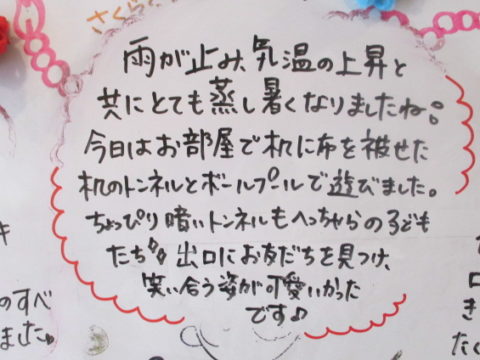 さくら
雨が止み、気温の上昇と
共にとても蒸し暑くなりましたね。
今日はお部屋で机に布を被せた
机のトンネルとボールプールで遊びました。
ちょっぴり暗いトンネルもへっちゃらの子ども
たち 出口にお友だちを見つけ、
笑い合う姿が可愛いかった
です♪
キ
のすべ
ました
き
たく